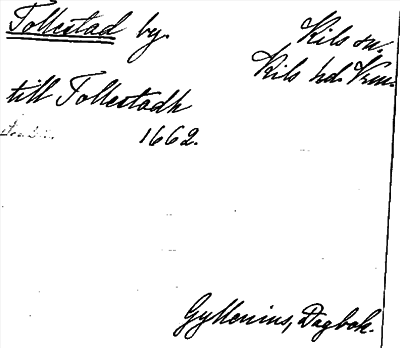 Tollestad by.
Kils sn.
Kils hd. Vrm.
till Tollestadh
1662.
Gyllenius, Dagbok.